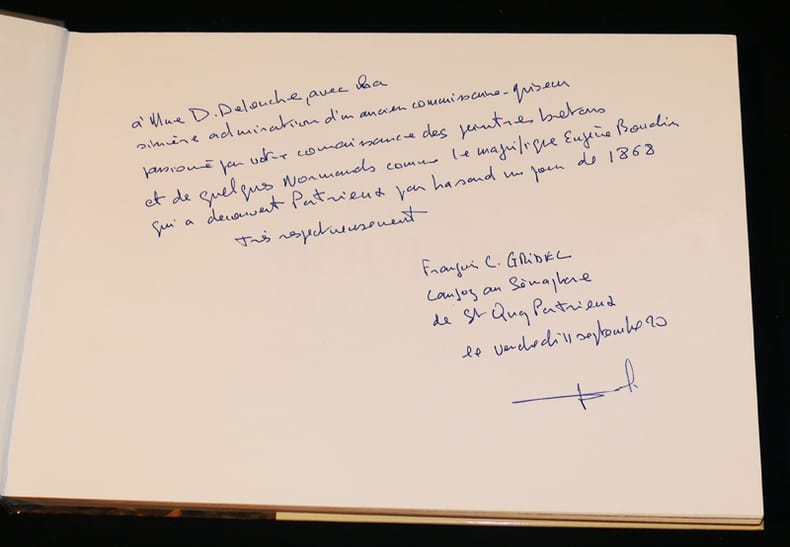 à Mme D. Delouche, avec la
sincère admiration d'un ancien commissaire-priseur
passionné par votre connaissance des peintres bretons
et de quelques Normands comme le magnifique Eugène Boudin
qui a decouvert Portrieux par hasard un jour de 1868
Très respectueusement
François C. GRIDEL
au Sémaphore
de St Quay Portrieux
le vendredi 11 septembre 20